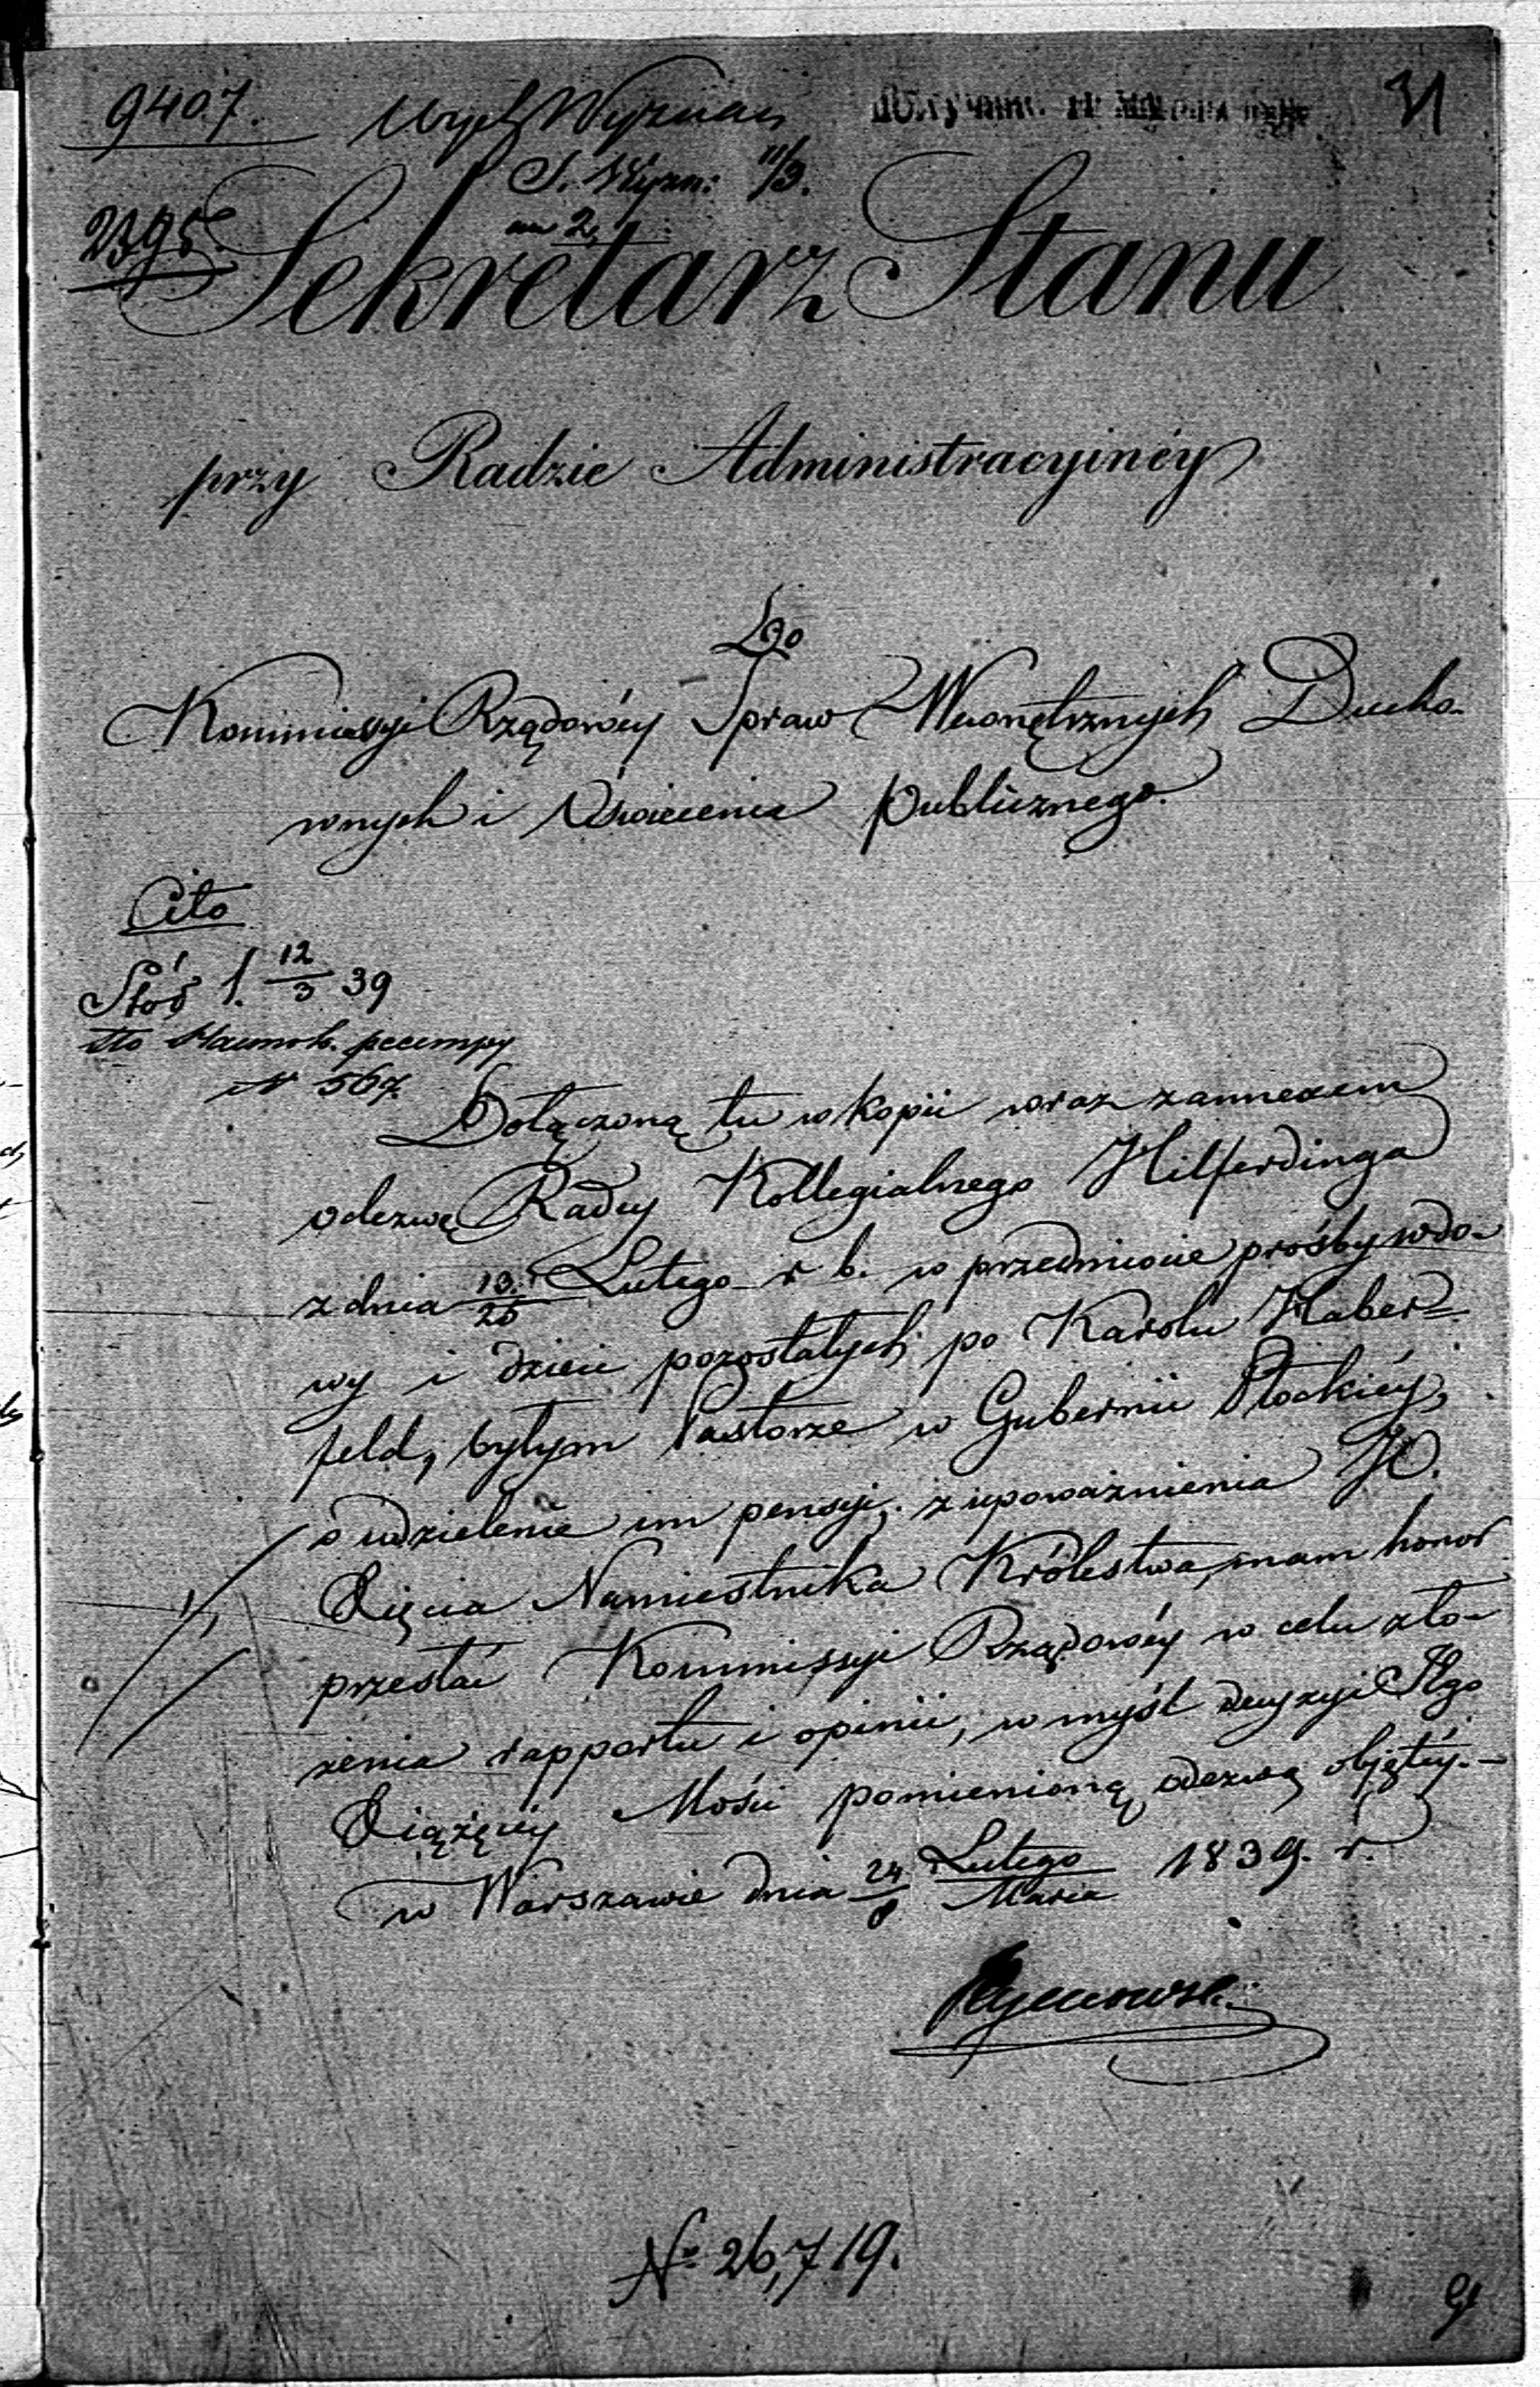 9407.
Wydz Wyznań
31
S. Wyzn: 11/3.
2395.
Sekretarz Stanu
przy Radzie Administracyinéy
Do
Kommissyi Rządowéy Spraw Wewnętrznych Ducho-
wnych i Oświecenia publicznego.
Cito
12/3 39
N 567.
Dołączoną tu w kopii wraz z annexem
odezwę Radcy Kollegialnego Hilferdinga
z dnia 13/25 Lutego r b. w przedmiocie prośby wdo-
wy i dzieci pozostałych po Karolu Haber=
feld, byłym Pastorze w Gubernii Płockiéy,
o udzielenie im pensyi, z upoważnienia JO.
Xięcia Namiestnika Królestwa, mam honor
przesłać Kommissyi Rządowéy w celu zło-
żenia rapportu i opinii, w myśl decyzyi Jego
Xiążęcéy Mości pomienioną odezwą objętéy.-
w Warszawie dnia 24/8 Lutego/Marca 1839. r.
No 26,719.